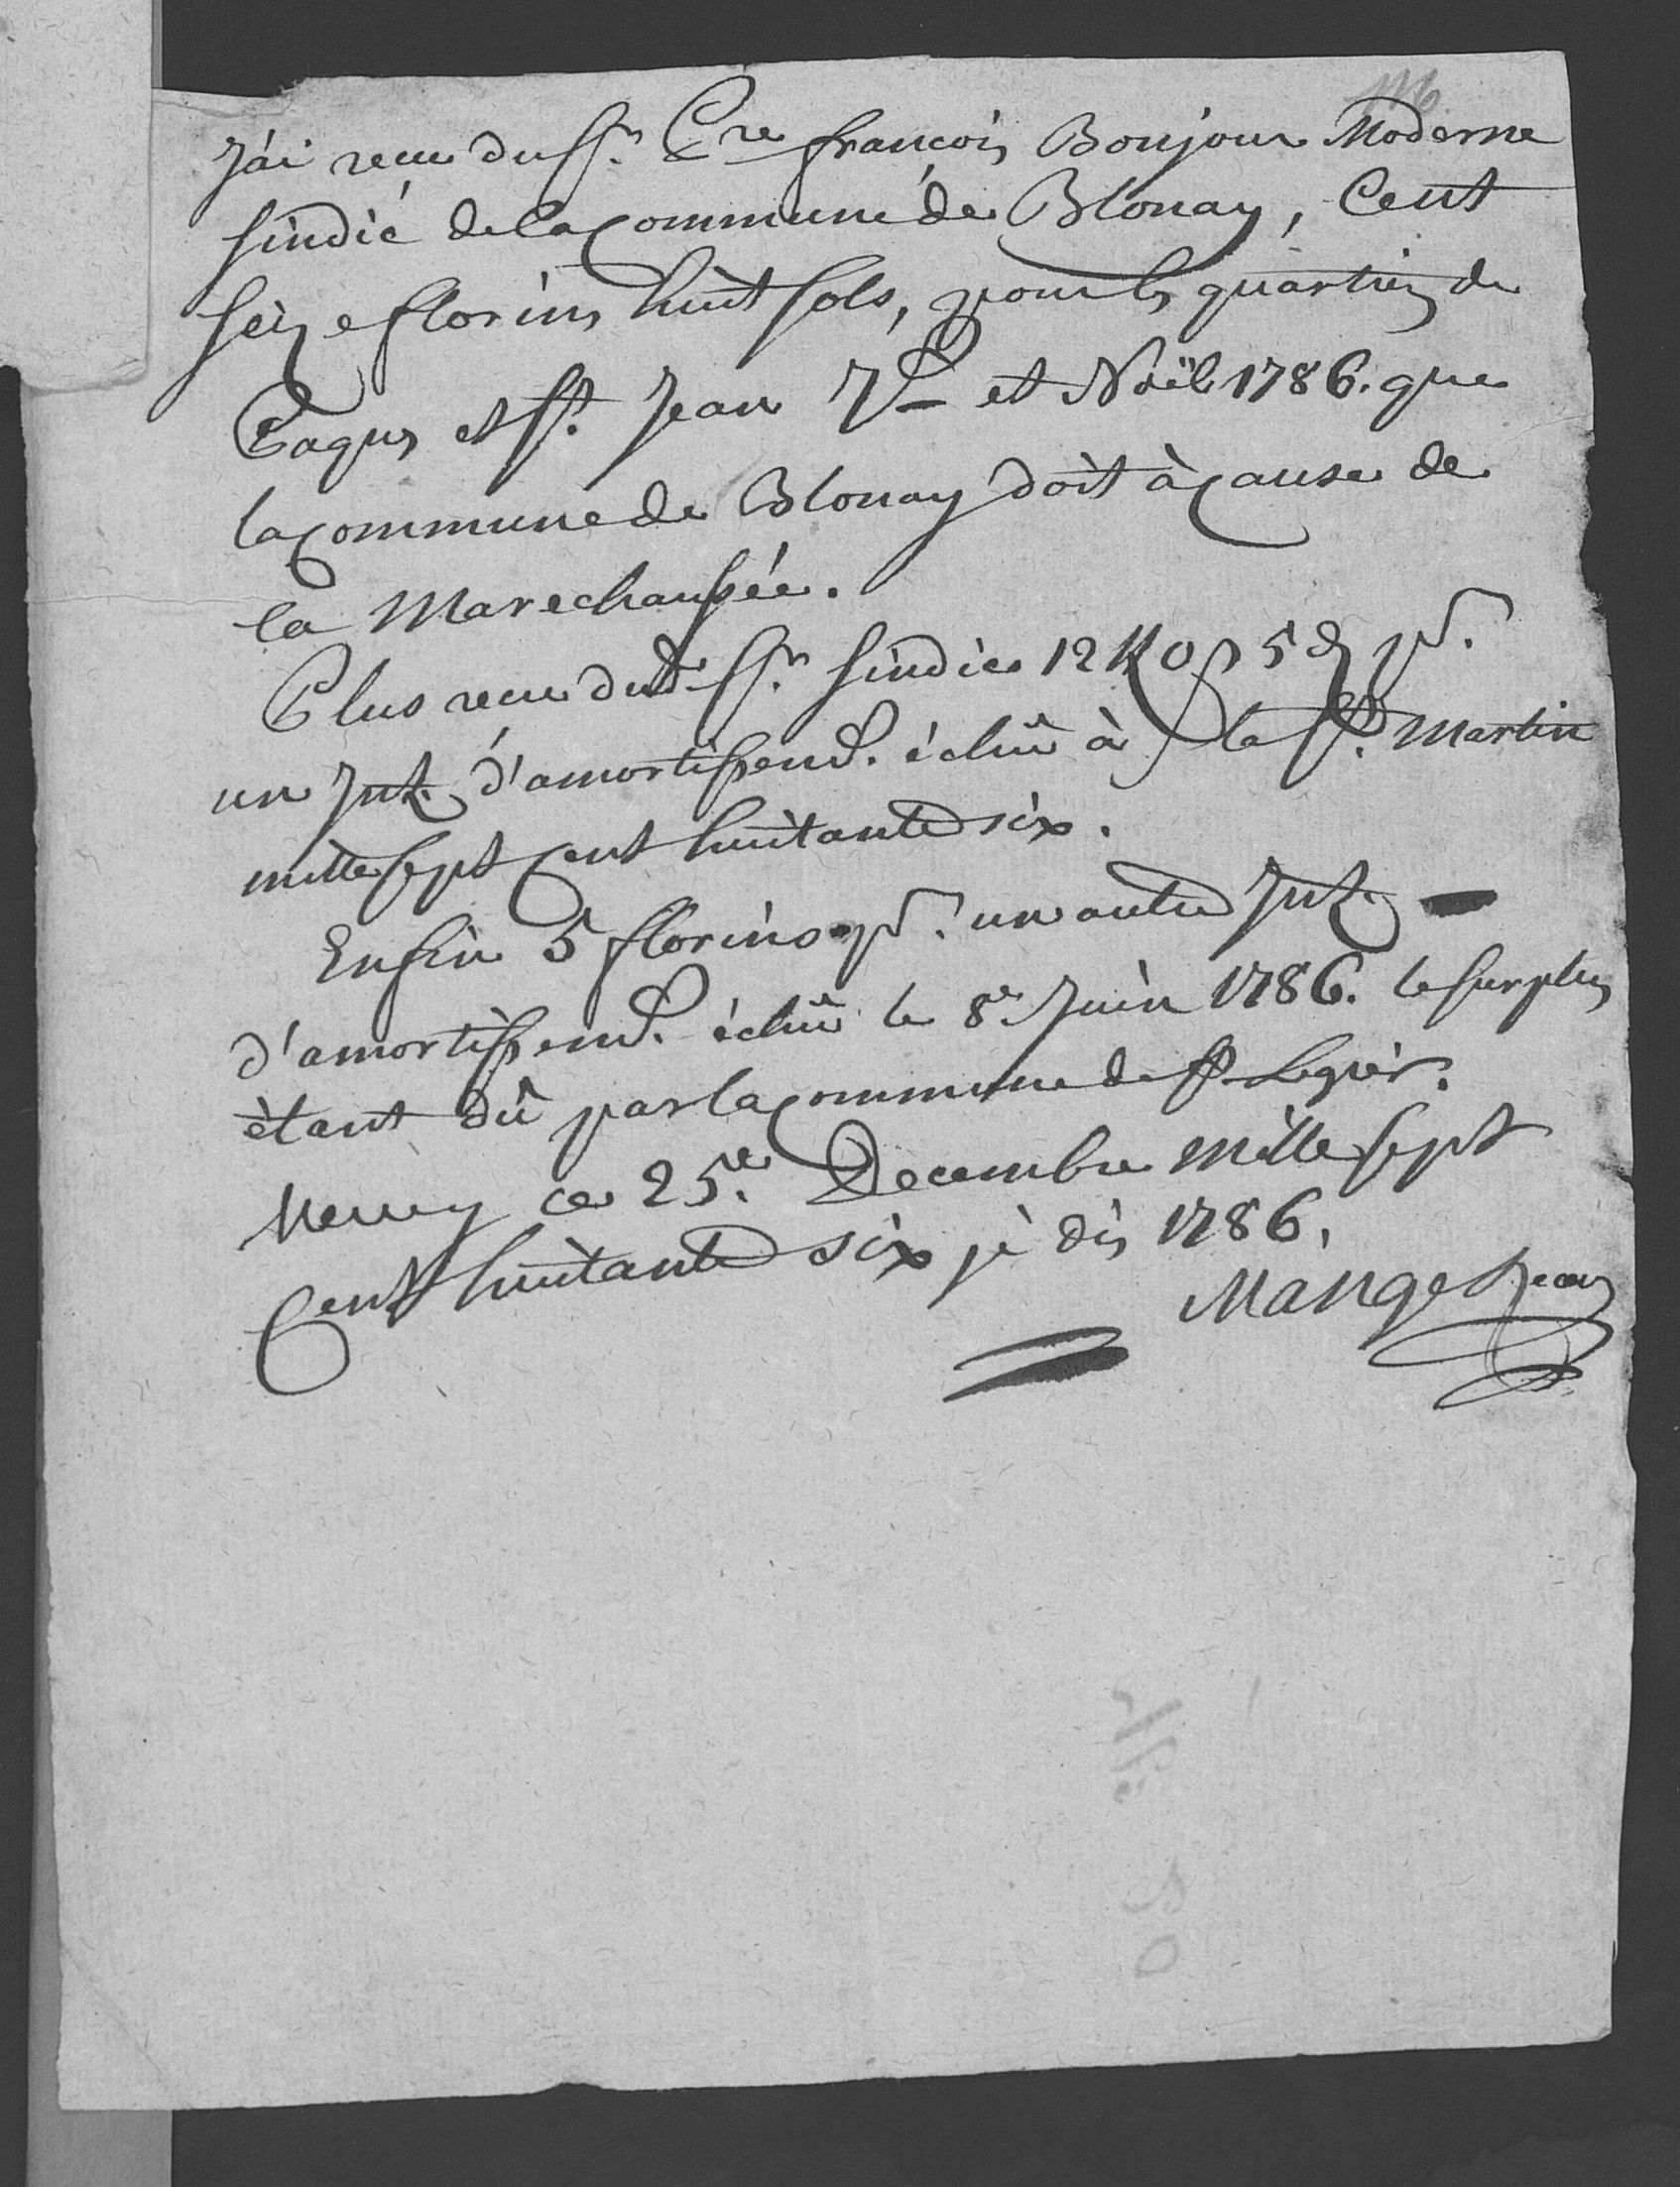 J'ai recu du Sr. Pre françois Bonjour Moderne
sindic de la Commune de Blonay, Cent
seize florins huit sols, pour les quartiers de
Paques et St. Jean 7bre et Noël 1786. que
la Commune de Blonay doit à Cause de
la Marechaussée.
Plus recu dudt Sr. sindic 12 5 pr.
un Int. d'amortissend. échû à la St. Martin
mille sept Cent huitante six.
Enfin 5 florins pr. un autre Int. —
d'amortissend. échû le 8e. Juin 1786. le surplus
étant dû par la Commune de St. Legier.
Vevey ce 25e. Decembre mille sept
Cent huitante six je dis 1786.